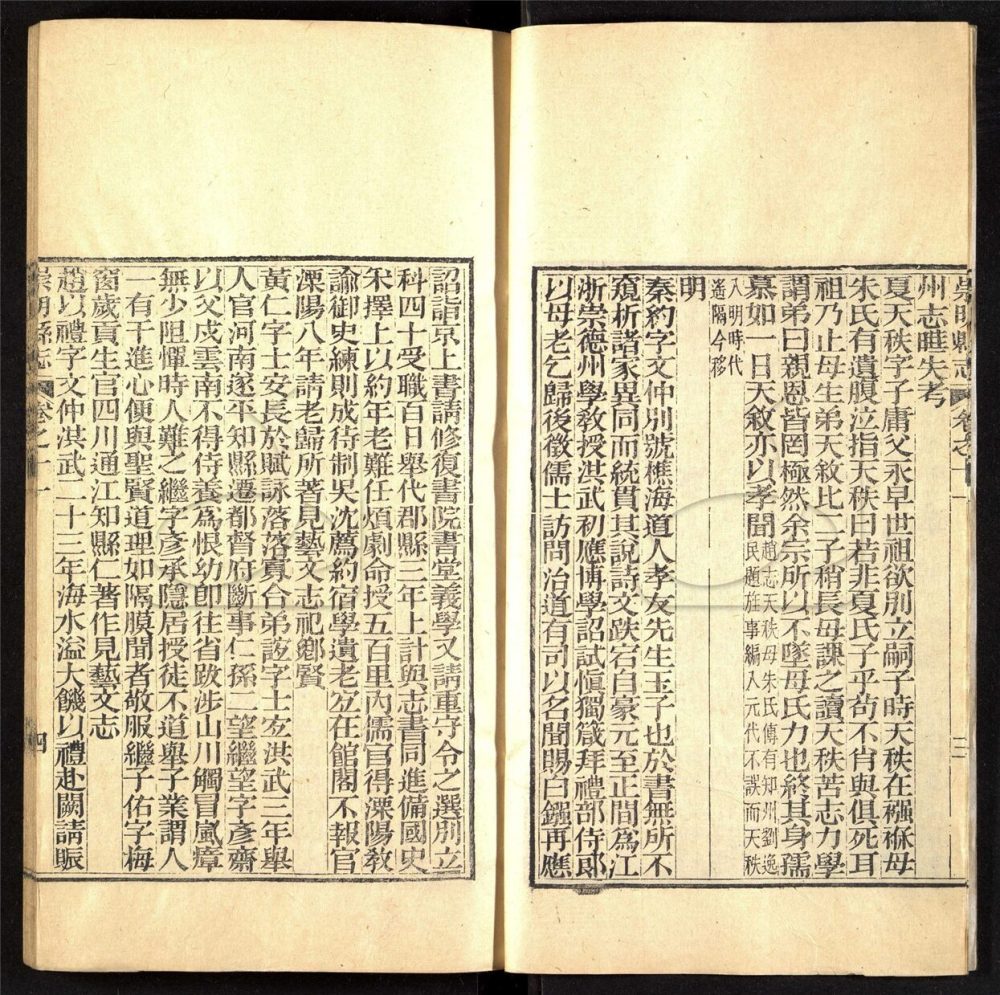 崇明縣志 卷之十一 三
州志雎失考
夏天秩字子庸父永早世祖欲別立嗣子時天秩在襁褓母
朱氏有遺腹泣指天秩曰若非夏氏子乎苟不肖與俱死耳
祖乃止母生弟天敘比二子稍長母課之讀天秩苦志力學
謂弟曰親恩皆罔極然余宗所以不墜母氏力也終其身孺
慕如一日天敘亦以孝聞趙志天秩母朱氏傳有知州劉逸
民題旌事編入元代不誤而天秩
入明時代
遙隔今移
明
秦約字文仲別號樵海道人孝友先生玉子也於書無所不
窺析諸家異同而統貫其說詩文跌宕自豪元至正間為江
浙崇德州學教授洪武初應博學詔試愼獨箴拜禮部侍郎
以母老乞歸後徵儒士訪問治道有司以名聞賜白鏹再應
詔詣京上書請修復書院書堂義學又請重守令之選別立
科四十受職百日舉代郡縣三年上計與志書同進備國史
宋擇上以約年老難任煩劇命授五百里內儒官得溧陽敎
諭御史練則成待制吳沈薦約宿學遺老宜在館閣不報官
溧陽八年請老歸所著見藝文志祀鄉賢
黃仁字士安長於賦詠落落寡合弟該字士宏洪武三年舉
人官河南遂平知縣遷都督府斷事仁孫二望繼望字彥齋
以父戍雲南不得侍養為恨幼卽往省跋涉山川觸冒嵐瘴
無少阻憚時人難之繼字彥承隱居授徒不道舉子業謂人
一有干進心便與聖賢道理如隔膜聞者敬服繼子佑字梅
窗歲貢生官四川通江知縣仁著作見藝文志
趙以禮字文仲洪武二十三年海水溢大饑以禮赴闕請賑
崇明縣志 卷之十一 四